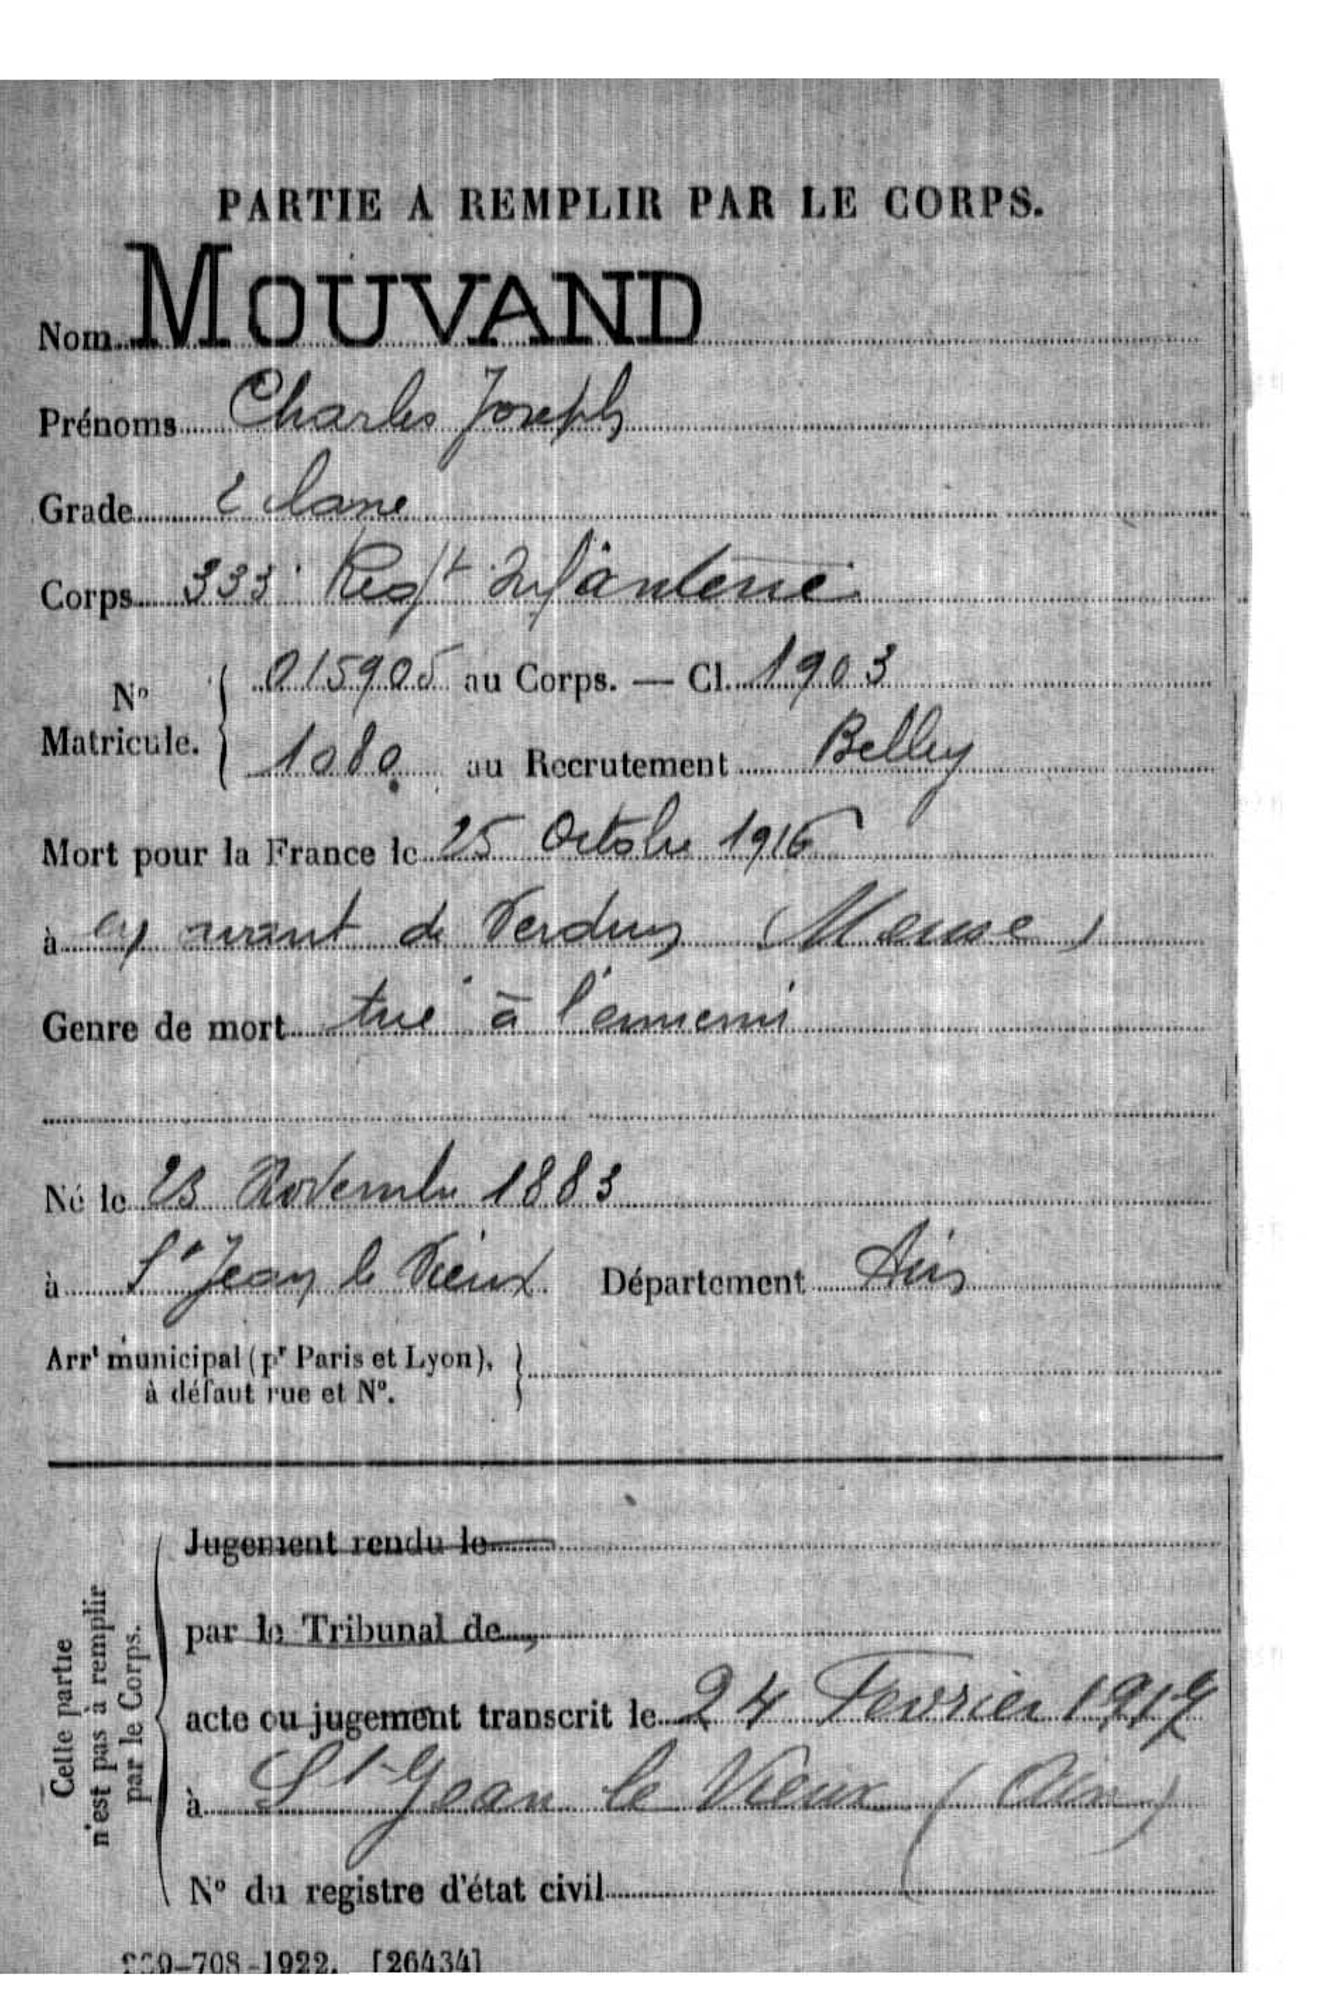 PARTIE A REMPLIR PAR LE CORPS.
Nom MOUVAND
Prénoms Charles Joseph
Grade 2 classe
Corps 333 Regt Infanterie
N° Matricule. { 015905 au Corps. — Cl. 1903
1080 au Recrutement Belley
Mort pour la France le 25 Octobre 1916
à en avant de Verdun (Meuse)
Genre de mort tué à l'ennemi
Né le 23 Novembre 1883
à St Jean le Vieux. Département Ain
Arrt municipal (pr Paris et Lyon),
à défaut rue et N°.
Cette partie
n'est pas à remplir
par le Corps.
Jugement rendu le
par le Tribunal de
acte ou jugement transcrit le 24 Fevrier 1917
à St Jean le Vieux (Ain)
N° du registre d'état civil
-708-1922. [26434]